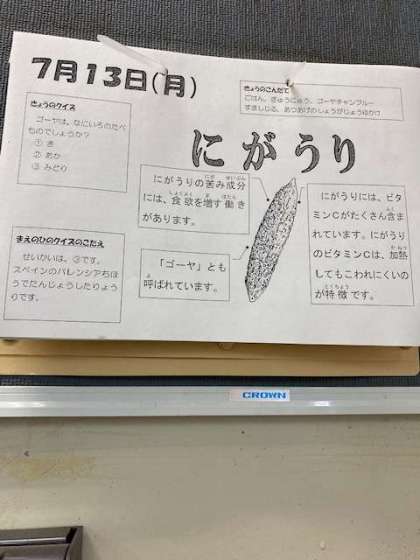 7月13日(月)
きょうのこんだて
ごはん、ぎゅうにゅう、ゴーヤチャンプルー
すましじる、あつあげのしょうがじょうゆかけ
きょうのクイズ
ゴーヤは、なにいろのたべ
ものでしょうか?
① き
② あか
③ みどり
にがうり
にがうりの苦み成分
には、食欲を増す働き
があります。
にがうりには、ビタ
ミンCがたくさん含ま
れています。にがうり
のビタミンCは、加熱
してもこわれにくいの
が特徴です。
「ゴーヤ」とも
呼ばれています。
まえのひのクイズのこたえ
せいかいは、③です。
スペインのバレンシアちほ
うでたんじょうしたりょう
りです。
CROWN